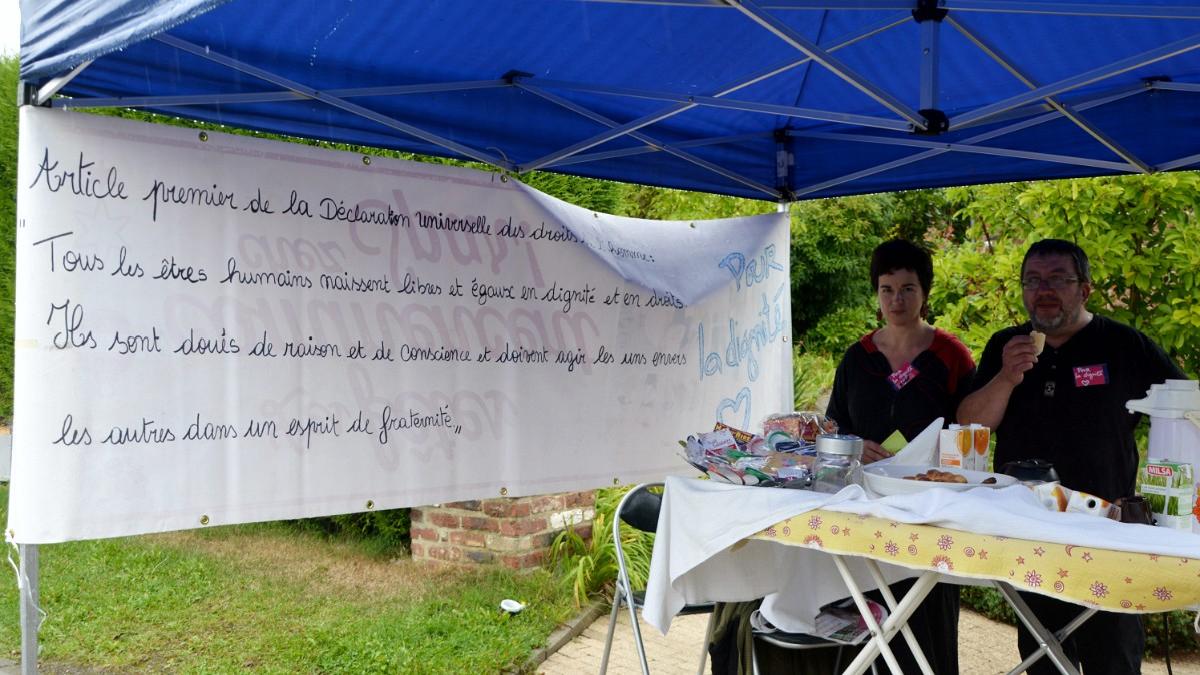 Article premier de la Déclaration universelle des droits l'homme:
" Tous les êtres humains naissent libres et égaux en dignité et en droits.
Ils sont doués de raison et de conscience et doivent agir les uns envers
les autres dans un esprit de fraternité „
Pour
la dignité
Pour
la dignité
Pour
la dignité
MILSA